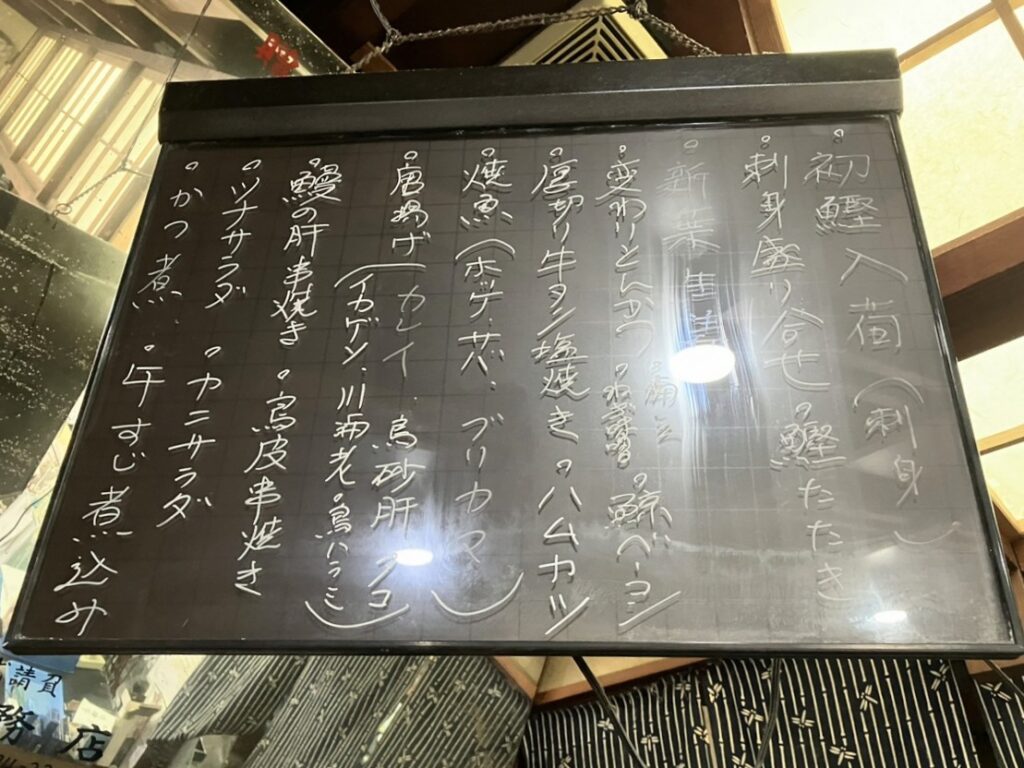 初鰹入荷(刺身)
刺身盛り合せ 鰹たたき
新葉
変わりとんかつ 鯨ベーコン
厚切り牛タン塩焼き ハムカツ
焼魚(ホッケ ブリカマ)
唐揚げ(カレイ 鳥砂肝 タコ
イカゲソ 川海老 鳥ハラミ)
鰻の肝串焼き 鳥皮串焼き
ツナサラダ カニサラダ
かつ煮 牛すじ煮込み
請負
務店